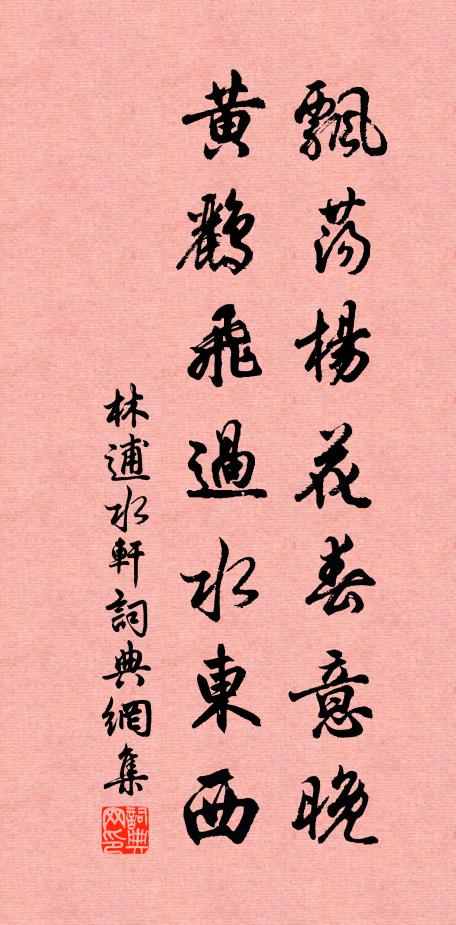 飄蕩楊花春意晚
黃鸝飛過水東西
林逋水軒詞典網集
詞典網印